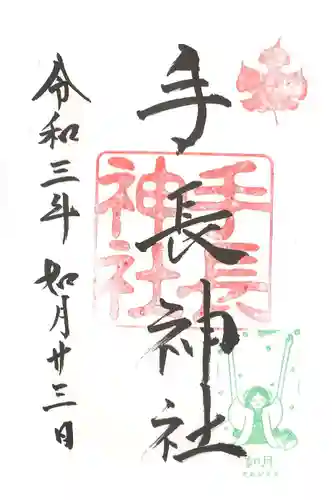 手長神社
手長
神社
令和三年 如月廿三日
如月